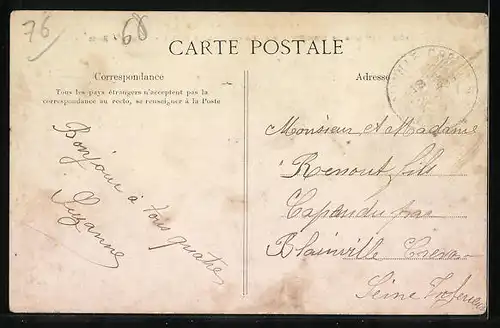 76
68
CARTE POSTALE
Correspondance
Tous les pays étrangers n'acceptent pas la
correspondance au recto, se renseigner à la Poste
Adresse
Bonjour à tous quatre
Suzanne
Monsieur et Madame
fils
Blainville Crevon
Seine Inférieure